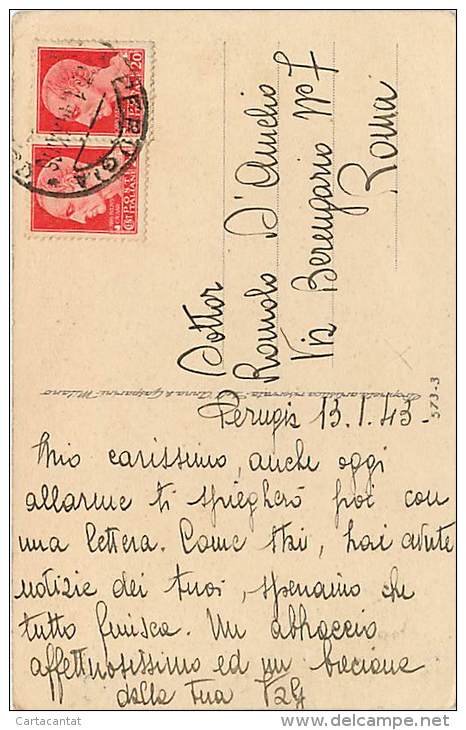 PERUGIA
20
POSTE ITALIANE
Dottor
Romolo D'Amelio
Via Berengario Nº 7
Roma
Proprietà artistica riservata Dit. Anna & Gasparini Milano
573-3
Perugia 13.1.43-
Mio carissimo, anche oggi
allarme ti spiegherò poi con
una lettera. Come stai, hai avute
notizie dei tuoi, speriamo che
tutto finisca. Un abbraccio
affettuosissimo ed un bacione
dalla tua
Cartacantat
www.delcampe.net